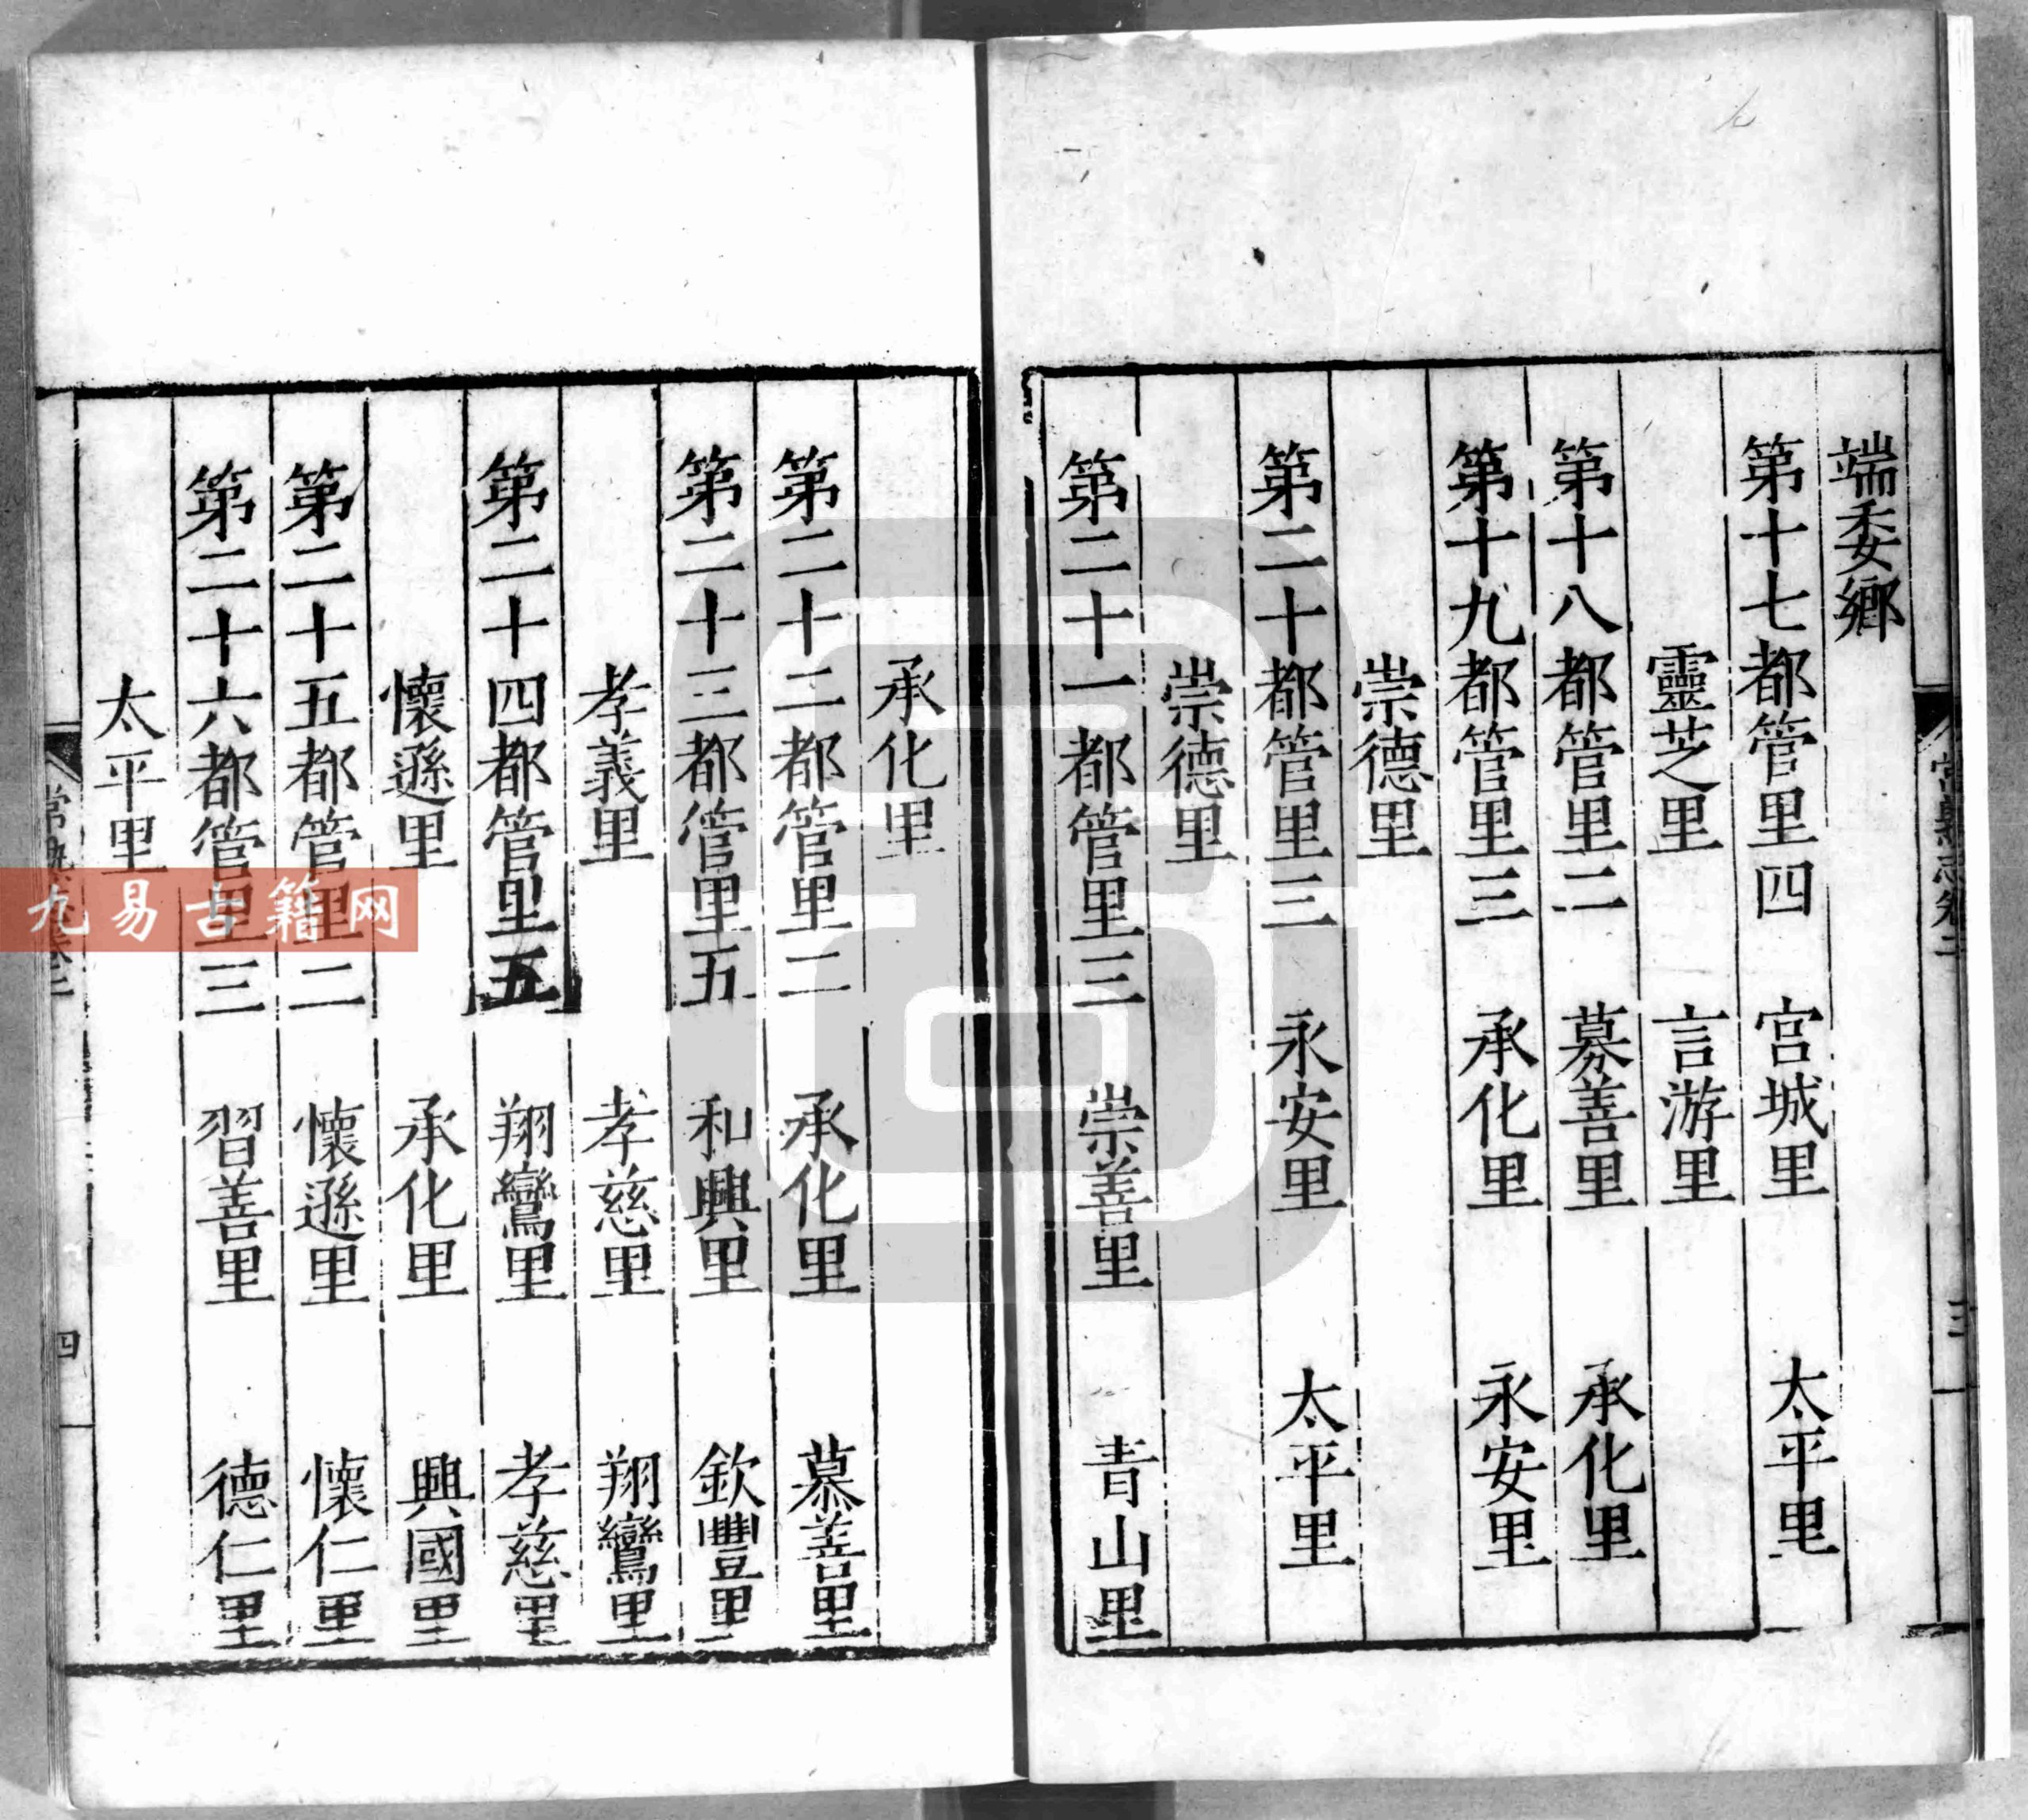 端委鄉
第十七都管里四　宫城里　太平里
靈芝里　言游里
第十八都管里二　募善里　承化里
第十九都管里三　承化里　永安里
崇德里
第二十都管里三　永安里　太平里
崇德里
第二十一都管里三　崇善里　青山里
承化里
第二十二都管里二　承化里　慕善里
第二十三都管里五　和興里　欽豐里
孝義里　孝慈里　翔鸞里
第二十四都管里五　翔鸞里　孝慈里
懷遜里　承化里　興國里
第二十五都管里二　懷遜里　懷仁里
第二十六都管里三　習善里　德仁里
太平里
四
九易古籍网